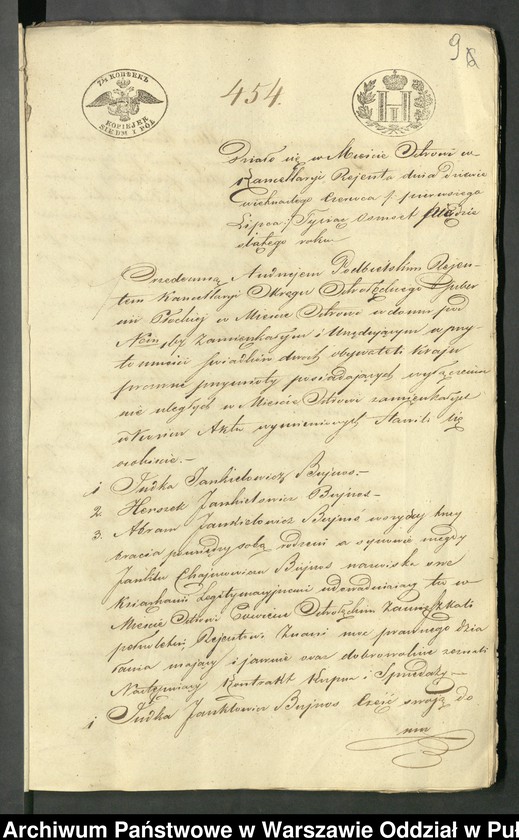 9
7½ КОПѢЕКЪ
KOPIEJEK SIEDM I PÓŁ
454.
Działo się w Mieście Ostrowi w
Kancellaryi Rejenta dnia dziewię
tnastego Czerwca / pierwszego
Lipca / Tysiąc Osmset
siątego roku
Przedemną Andrzejem Podbielskim Rejen-
tem Kancellaryi Okręgu Ostrołęckiego Guber
nii Płockiej w Mieście Ostrowi w domu pod
Nem zamieszkałym i Urzędującym w przy-
tomności świadków dwóch obywateli kraju
prawne przymioty posiadających wyłączeniu
nie uległych w Mieście Ostrowi zamieszkałych
w końcu Aktu wymienionych Stawili się
osobiście.-
1 Judka Jankielowicz Bujnos.-
2. Herszek Jankielowicz Bujnos-
3. Abram Jankielowicz Bujnos wszyscy trzej
bracia pomiędzy sobą rodzeni a synowie niegdy
Jankla Bujnos nazwiska swe
Książkami Legitymacyjnemi udowadniający tu w
Mieście Ostrowi Powiecie Ostrołęckim Zamieszkali
Rejentowi Znani moc prawnego dzia
łania mający i jawnie oraz dobrowolnie zeznali
Następujący Kontrakt Kupna i Sprzedaży
1 Judka Jankielowicz Bujnos Część swoją do
mu
Archiwum Państwowe w Warszawie Oddział w Puł